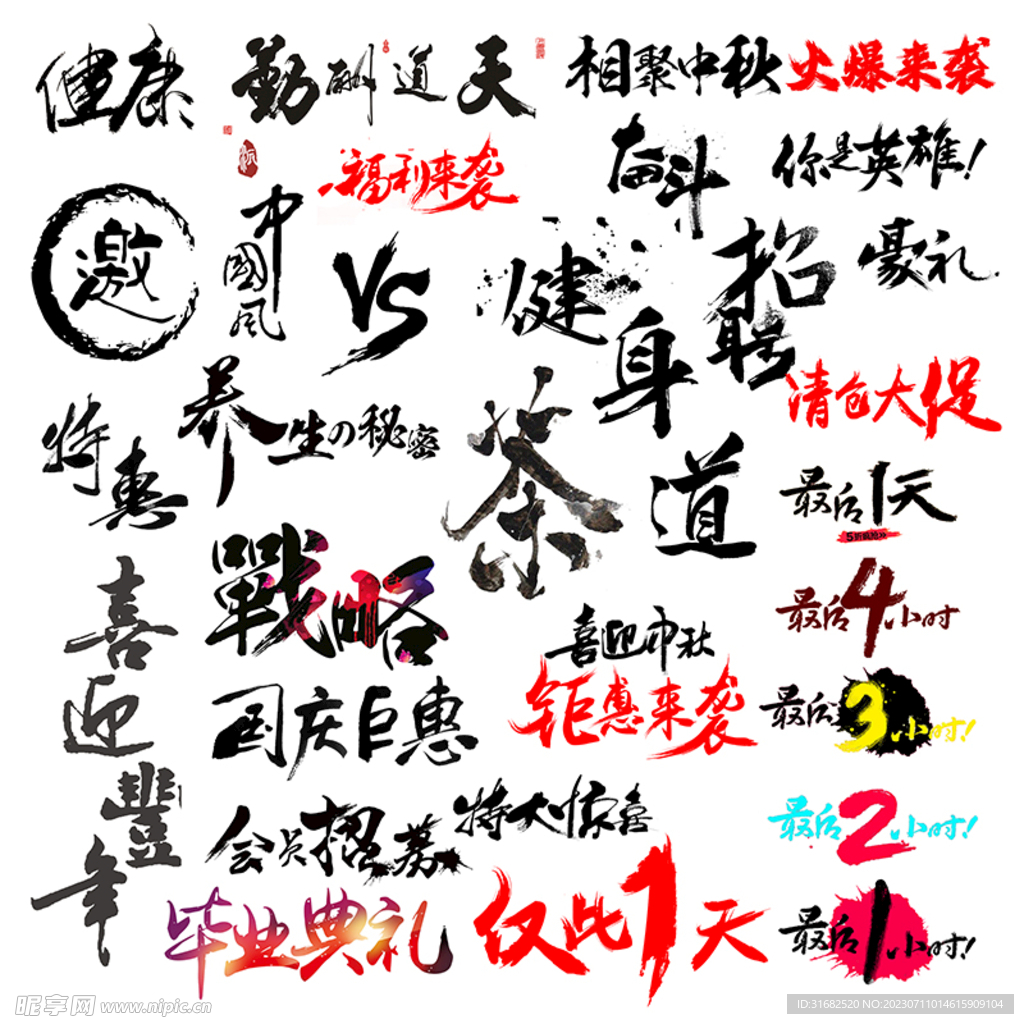 健康
勤酬道天
相聚中秋
火爆来袭
福利来袭
奋斗
你是英雄!
邀
中國風
VS
健身
招聘
豪礼
清仓大促
特惠
养生の秘密
茶道
最后1天
戰略
最后4小时
喜迎豐年
喜迎中秋
国庆巨惠
钜惠来袭
最后3小时!
会员招募
特大惊喜
最后2小时!
毕业典礼
仅此1天
最后1小时!
昵享网 www.nipic.cn
ID:31682520 NO:20230711014615909104